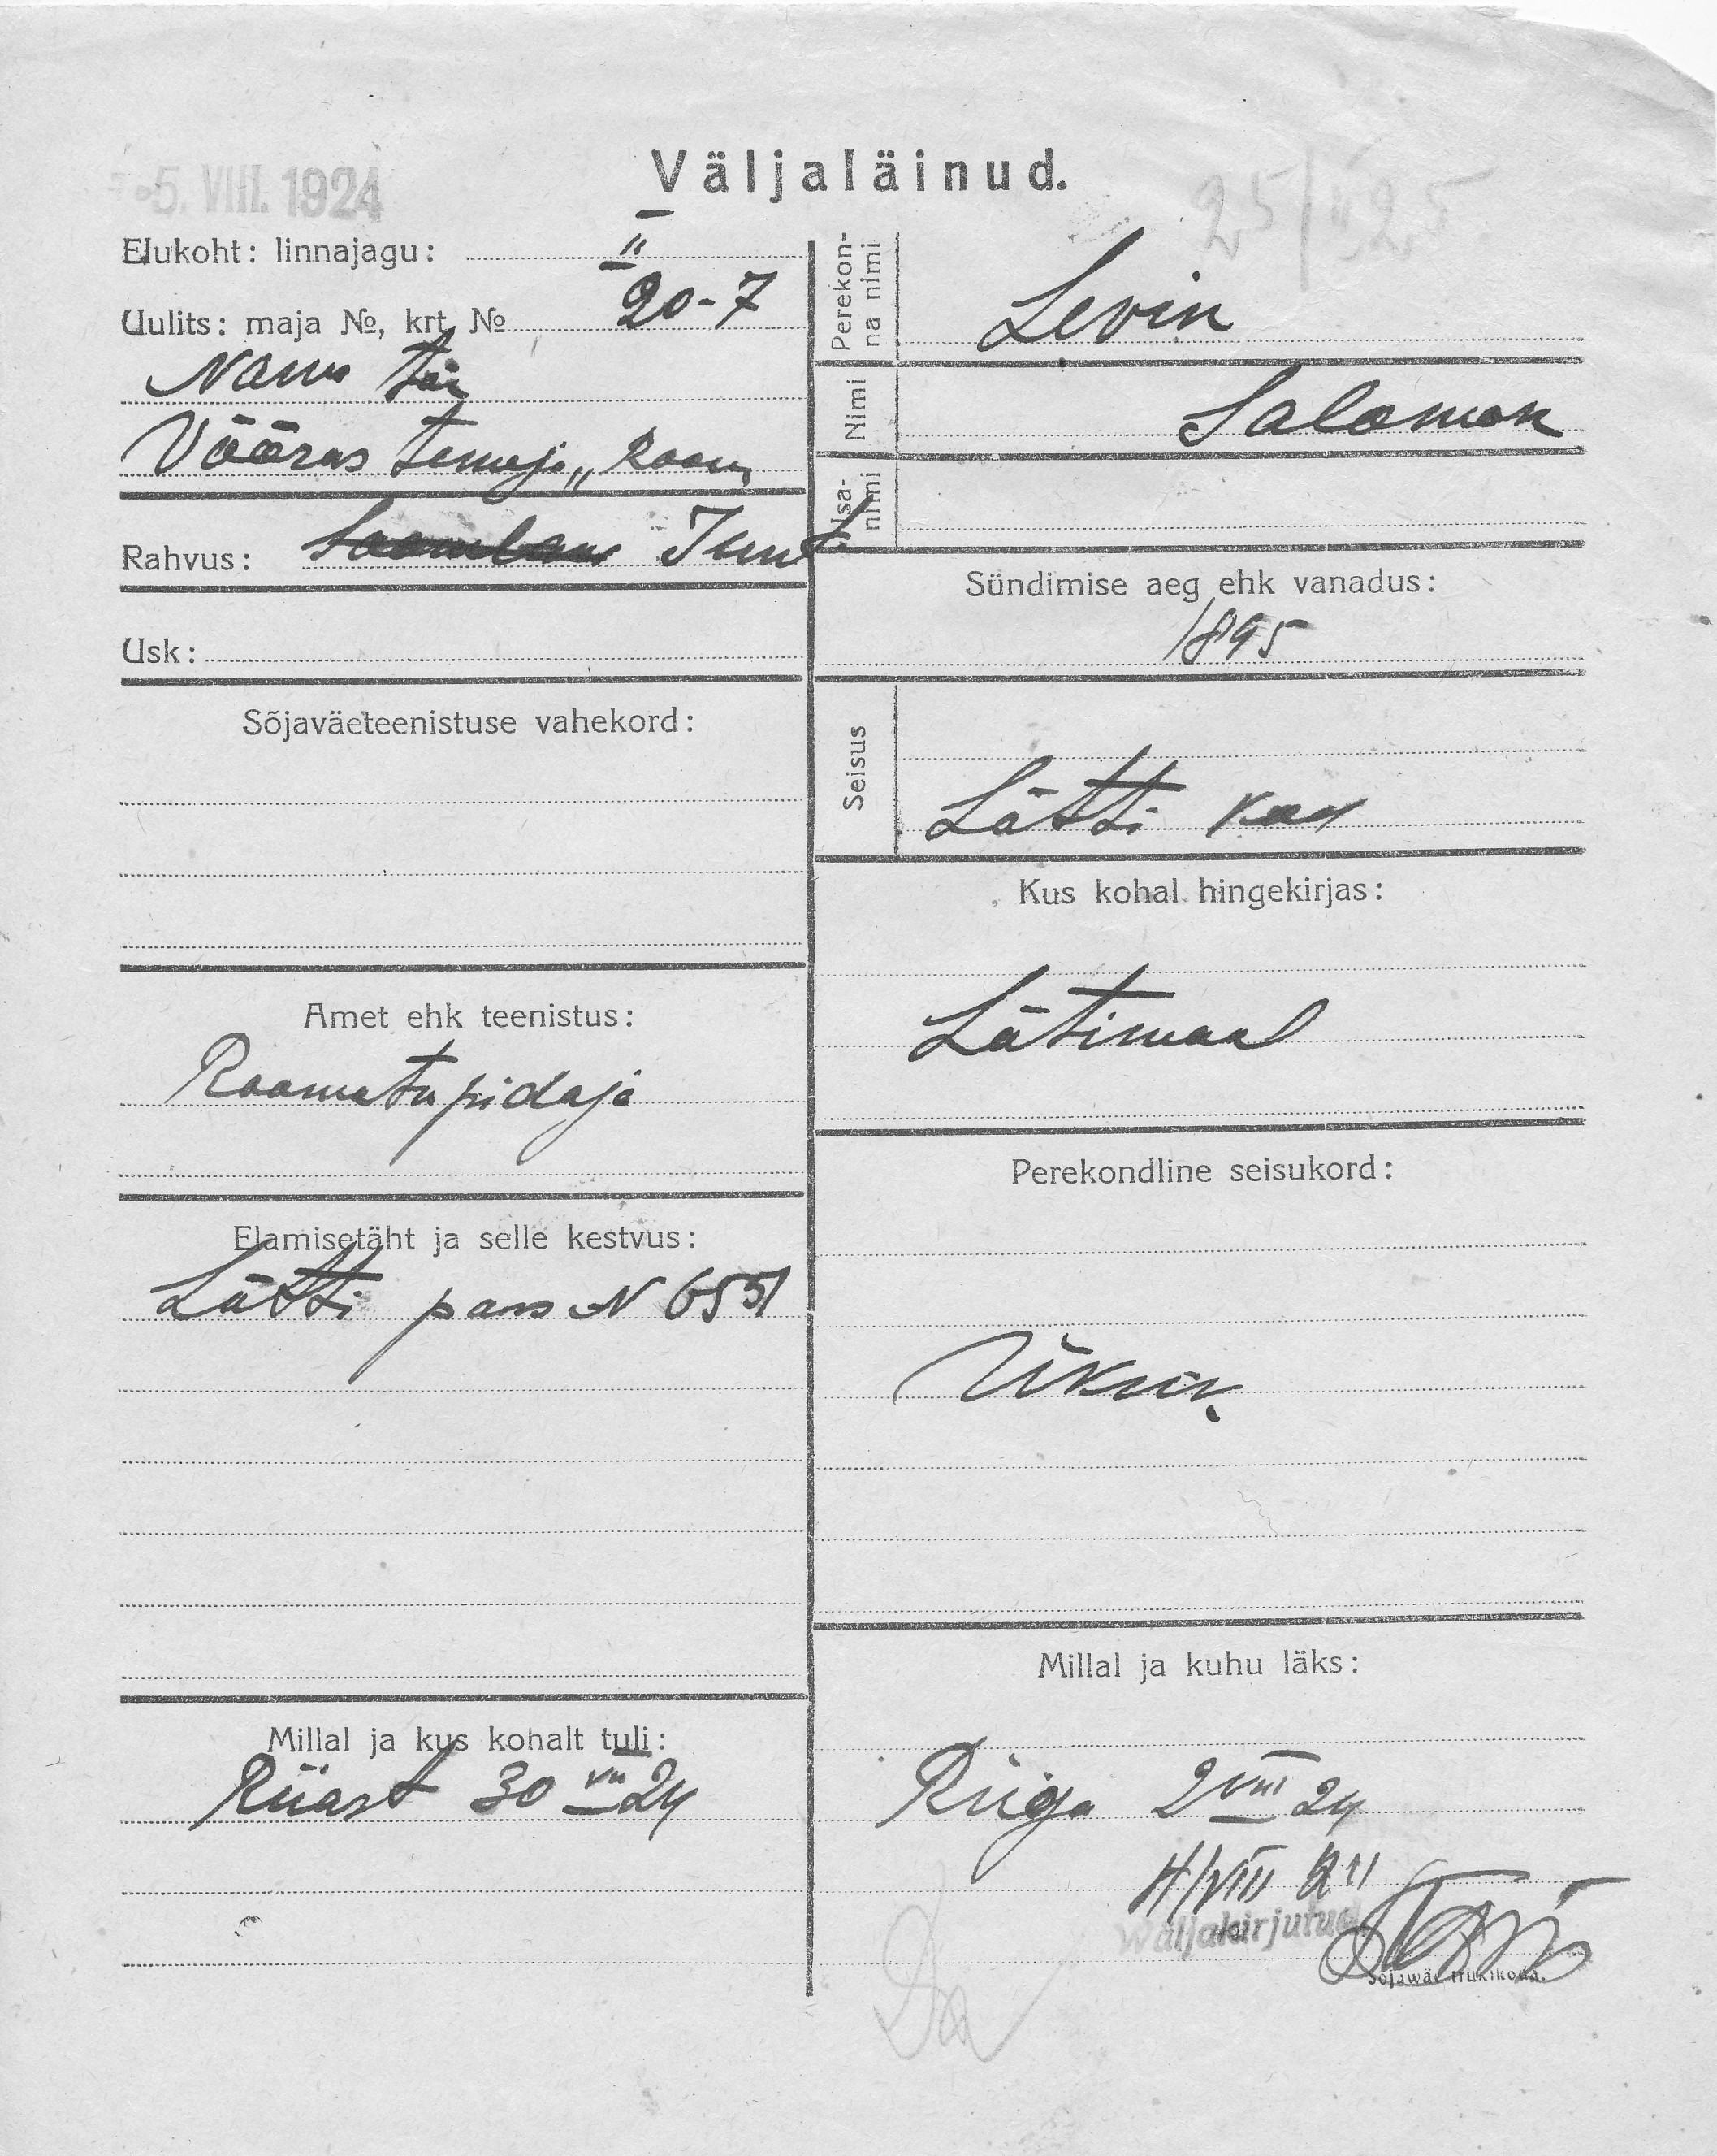 Väljaläinud.
5. VIII. 1924
25/II 25
Elukoht: linnajagu: II
Uulits: maja №, krt. № 20-7
Narva tän
Vööras temaja „Room„
Rahvus: Soomlane Juut
Usk:
Sõjaväeteenistuse vahekord:
Amet ehk teenistus:
Raamatupidaja
Elamisetäht ja selle kestvus:
Lätti pass N 6551
Millal ja kus kohalt tuli:
Riiast 30 VII 24
Perekon-
na nimi
Levin
Nimi
Salomon
Isa-
nimi
Sündimise aeg ehk vanadus:
1895
Seisus
Lätti kod
Kus kohal hingekirjas:
Lätimaal
Perekondline seisukord:
Üksik
Millal ja kuhu läks:
Riiga 2 VIII 24
4/VIII
Wäljakirjutud
Sõjawäe trükikoda.